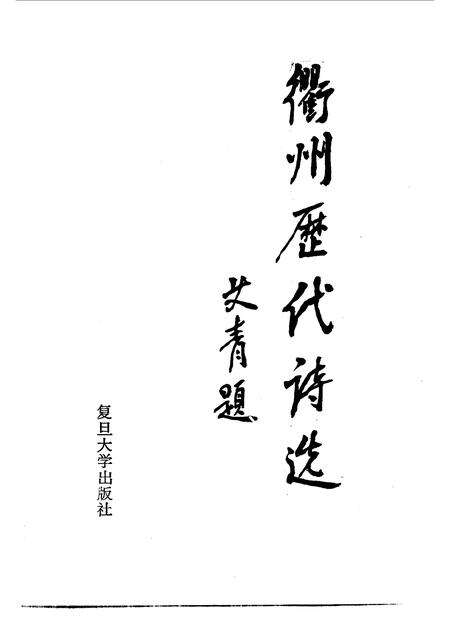 衢州歷代詩选
艾青題
复旦大学出版社